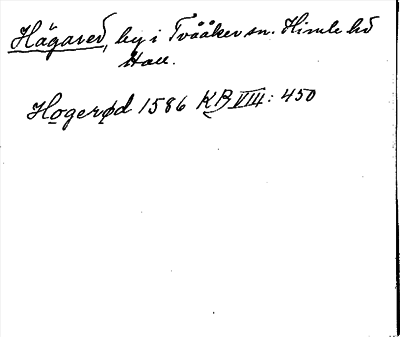 Hägared, by i Tvååker sn. Himle hd
Hall.
Hogerød 1586 KB VIII: 450